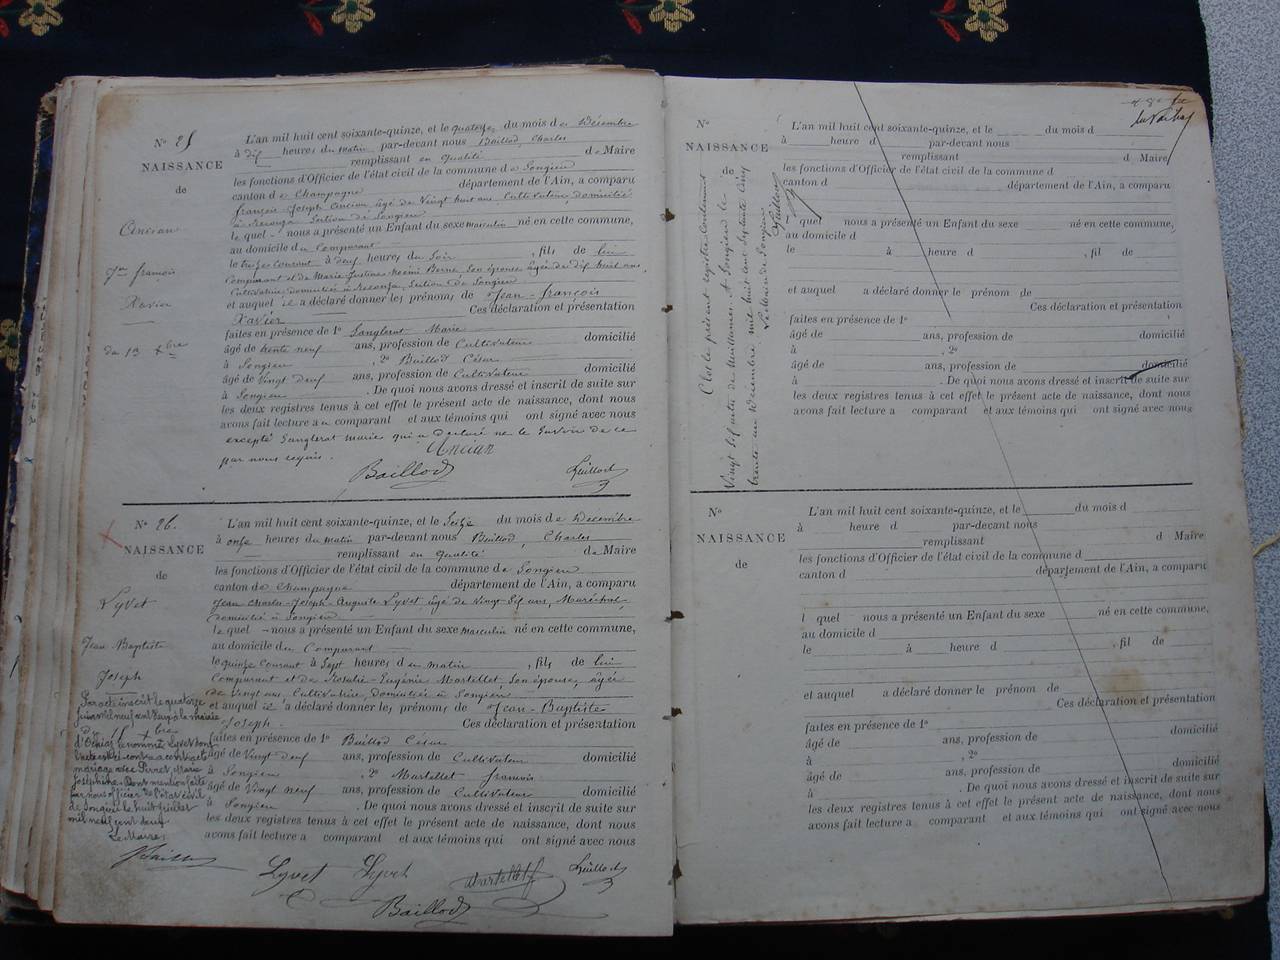 N° 25
NAISSANCE
de
Ancian
Jn françois
Xavier
du 13 Xbre
L'an mil huit cent soixante-quinze, et le quatorze du mois de Décembre
à dix heures du matin par-devant nous Baillod, Charles
remplissant en qualité de Maire
les fonctions d'Officier de l'état civil de la commune de Songieu
canton de Champagne département de l'Ain, a comparu
françois Joseph Ancian âgé de Vingt huit ans, Cultivateur, domicilié
à Section de Songieu
le quel nous a présenté un Enfant du sexe masculin né en cette commune,
au domicile du Comparant
le treize courant à neuf heures du Soir, fils de lui
Comparant et de Marie Justine Noëmi Berne Son épouse âgée de dix huit ans,
Cultivatrice, domiciliée à Section de Songieu
et auquel il a déclaré donner les prénoms de Jean-françois
Xavier Ces déclaration et présentation
faites en présence de 1° Sanglerat Marie domicilié
âgé de trente neuf ans, profession de Cultivateur
à Songieu, 2° Baillod César
âgé de Vingt neuf ans, profession de Cultivateur domicilié
à Songieu. De quoi nous avons dressé et inscrit de suite sur
les deux registres tenus à cet effet le présent acte de naissance, dont nous
avons fait lecture au comparant et aux témoins qui ont signé avec nous
excepté Sanglerat marie qui a déclaré ne le Savoir de ce
par nous requis.
Ancian
Baillod
N° 26.
NAISSANCE
de
Lyvet
Jean Baptiste
Joseph
L'an mil huit cent soixante-quinze, et le Seize du mois de Décembre
à onze heures du matin par-devant nous Baillod, Charles
remplissant en qualité de Maire
les fonctions d'Officier de l'état civil de la commune de Songieu
canton de Champagne département de l'Ain, a comparu
Jean Charles-Joseph-Auguste Lyvet âgé de Vingt Six ans, Maréchal,
domicilié à Songieu
le quel nous a présenté un Enfant du sexe masculin né en cette commune,
au domicile du Comparant
le quinze Courant à Sept heures du matin, fils de lui
Comparant et de Rosalie-Eugénie Martellet Son épouse, âgée
de Vingt ans, Cultivatrice, domiciliée à Songieu
et auquel il a déclaré donner les prénoms de Jean-Baptiste
Joseph Ces déclaration et présentation
faites en présence de 1° Baillod César
âgé de Vingt neuf ans, profession de Cultivateur domicilié
à Songieu, 2° Martellet françois
âgé de Vingt neuf ans, profession de Cultivateur domicilié
à Songieu. De quoi nous avons dressé et inscrit de suite sur
les deux registres tenus à cet effet le présent acte de naissance, dont nous
avons fait lecture a comparant et aux témoins qui ont signé avec nous
Par acte inscrit le quatorze
mil neuf cent à la mairie
le nommé Lyvet
a contracté
mariage avec Perret Marie
Joséphine. Dont mention faite
par nous officier de l'état civil
de Songieu le huit
mil neuf cent
Le Maire,
Lyvet Lyvet Martellet
Baillod
N°
NAISSANCE
L'an mil huit cent soixante-quinze, et le du mois d
à heure d par-devant nous
remplissant d Maire
les fonctions d'Officier de l'état civil de la commune d
canton d département de l'Ain, a comparu
l quel nous a présenté un Enfant du sexe né en cette commune,
au domicile d
le à heure d, fil de
et auquel a déclaré donner le prénom de
Ces déclaration et présentation
faites en présence de 1°
âgé de ans, profession de domicilié
à, 2°
âgé de ans, profession de domicilié
à. De quoi nous avons dressé et inscrit de suite sur
les deux registres tenus à cet effet le présent acte de naissance, dont nous
avons fait lecture a comparant et aux témoins qui ont signé avec nous
Clos le présent registre contenant
Vingt Six actes de Naissances. A Songieu le
trente un Décembre mil huit cent Septante Cinq
Le Maire de Songieu
N°
NAISSANCE
de
L'an mil huit cent soixante-quinze, et le du mois d
à heure d par-devant nous
remplissant d Maire
les fonctions d'Officier de l'état civil de la commune d
canton d département de l'Ain, a comparu
l quel nous a présenté un Enfant du sexe né en cette commune,
au domicile d
le à heure d, fil de
et auquel a déclaré donner le prénom de
Ces déclaration et présentation
faites en présence de 1°
âgé de ans, profession de domicilié
à, 2°
âgé de ans, profession de domicilié
à. De quoi nous avons dressé et inscrit de suite sur
les deux registres tenus à cet effet le présent acte de naissance, dont nous
avons fait lecture a comparant et aux témoins qui ont signé avec nous